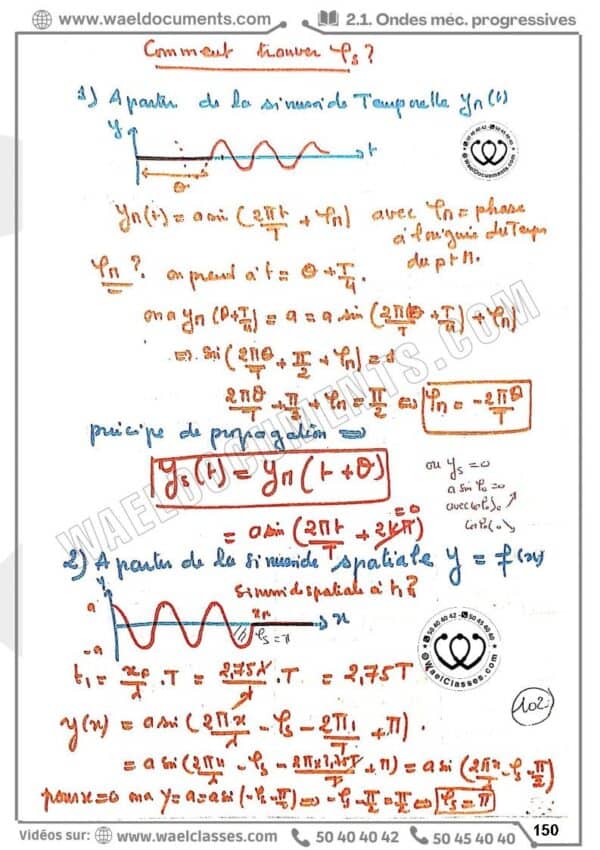 www.waeldocuments.com
2.1. Ondes méc. progressives
Comment trouver φs ?
1) A partir de la sinusoide Temporelle yM(t)
y
t
θ
yM(t) = a sin (2πt/T + φM) avec φM = phase
à l'origine du Temps
du pt M.
φM ? on prend à t = θ + T/4.
on a yM(θ+T/4) = a = a sin (2π/T(θ + T/4) + φM)
⇒ sin (2πθ/T + π/2 + φM) = 1
2πθ/T + π/2 + φM = π/2 ⇔ φM = -2πθ/T
principe de propagation ⇒
ys(t) = yM(t+θ)
ou ys = 0
a sin φs = 0
= a sin (2πt/T + 2kπ) = 0
2) A partir de la sinusoide spatiale y = f(x)
Sinusoide spatiale à t1 ?
y
a
-a
xF
φs = π
x
t1 = xF/λ . T = 2,75λ/λ . T = 2,75T
y(x) = a sin (2πx/λ - φs - 2πt1/T + π).
= a sin (2πx/λ - φs - 2π×2,75T/T + π) = a sin (2πx/λ - φs - π/2)
pour x=0 on a y = a = a sin (-φs - π/2) ⇔ -φs - π/2 = π/2 ⇔ φs = π
102
WAELDOCUMENTS.COM
50 40 40 42
50 45 40 40
©WaelDocuments.com
50 40 40 42
50 45 40 40
©WaelClasses.com
Vidéos sur: www.waelclasses.com 50 40 40 42 50 45 40 40
150